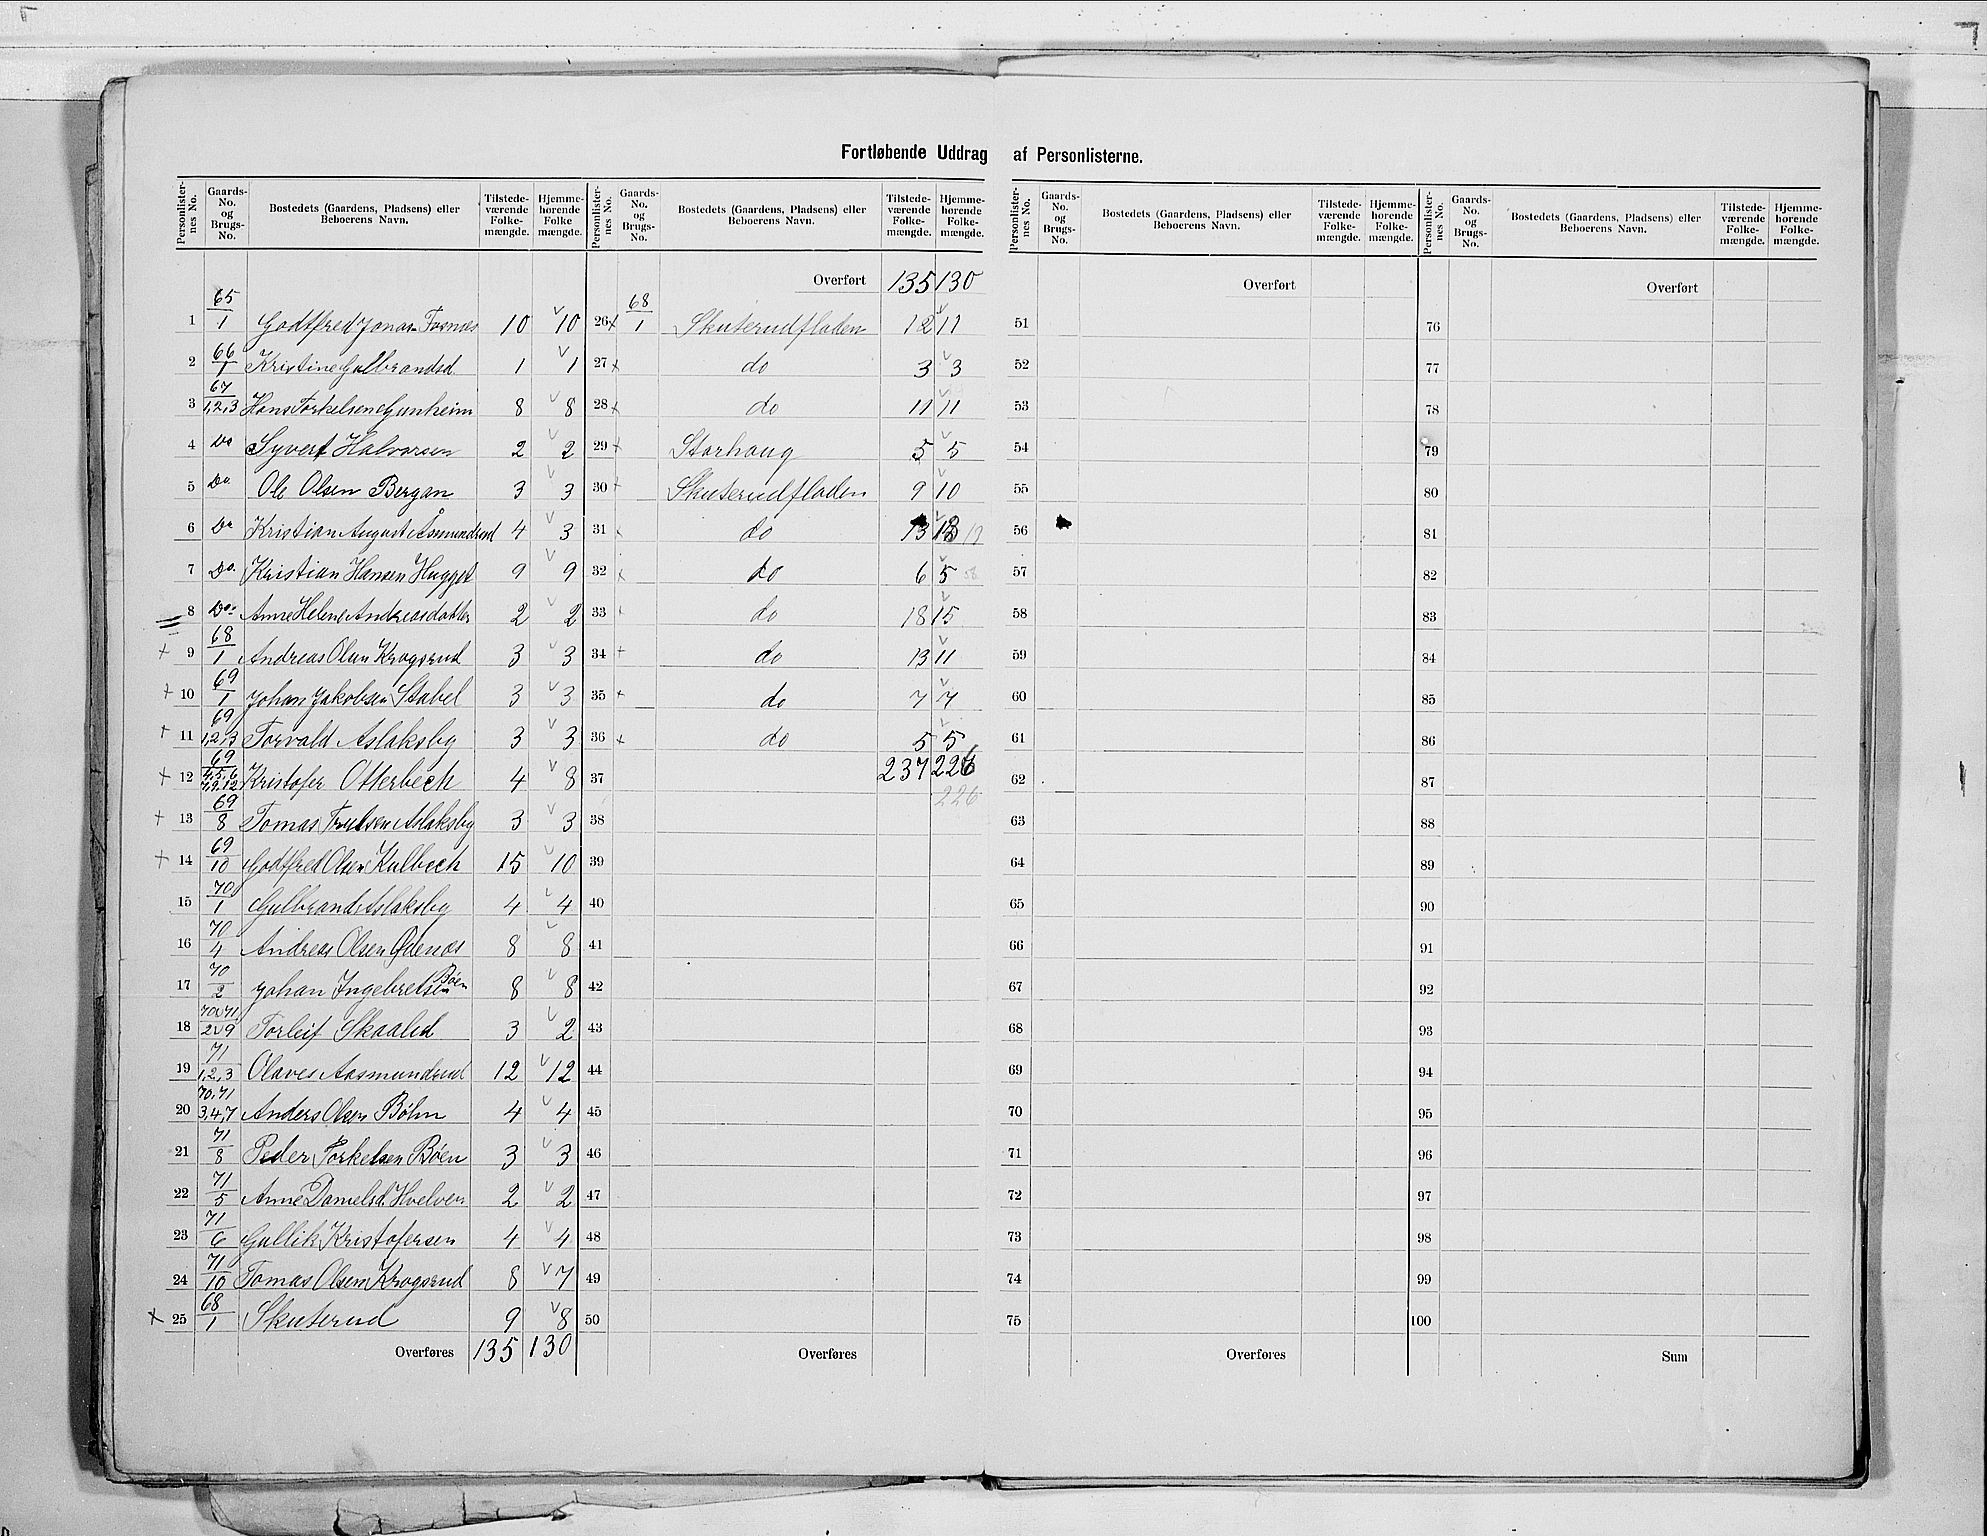 Fortløbende Uddrag af Personlisterne.
Personlisternes No. Gaards-No. og Brugs-No. Bostedets (Gaardens, Pladsens) eller Beboerens Navn. Tilstedeværende Folkemængde. Hjemmehørende Folkemængde.
1 65/1 Godtfred Jonas. Fosnæs 10 10
2 66/1 Kristine Gulbrandsd. 1 1
3 67/1,2,3 Hans Torkelsen Gunheim 8 8
4 Do Syvert Halvorsen 2 2
5 Do Ole Olsen Bergan 3 3
6 Do Kristian August Åsmundrud 4 3
7 Do. Kristian Hansen Hugget 9 9
8 Do. Anne Helene Andreasdatter 2 2
9 68/1 Andreas Olsen Krogsrud 3 3
10 69/1 Johan Jakobsen Stabel 3 3
11 69/1,2,3 Torvald Aslaksby 3 3
12 69/4,5,6 7,9,12 Kristofer Otterbech 4 8
13 69/8 Tomas Trulsen Aslaksby 3 3
14 69/10 Godtfred Olsen Kulbech 15 10
15 70/1 Gulbrand Aslaksby 4 4
16 70/4 Andreas Olsen Ødenæs 8 8
17 70/2 Johan Ingebretsen Bøen 8 8
18 70 v 71/2 v 9 Torleif Skaalid 3 2
19 71/1,2,3 Olaves Aasmundrud 12 12
20 70,71/3,4,7 Anders Olsen Bøhn 4 4
21 71/8 Peder Torkelsen Bøen 3 3
22 71/5 Anne Danielsd. Hvelven 2 2
23 71/6 Gullik Kristofersen 4 4
24 71/10 Tomas Olsen Krogsrud 8 7
25 68/1 Skuterud 9 8
Overføres 135 130
Personlisternes No. Gaards-No. og Brugs-No. Bostedets (Gaardens, Pladsens) eller Beboerens Navn. Tilstedeværende Folkemængde. Hjemmehørende Folkemængde.
Overført 135 130
26 68/1 Skuterudfladen 12 11
27 do 3 3
28 do 11 11
29 Storhaug 5 5
30 Skuterudfladen 9 10
31 do 13
32 do 6 5
33 do 18 15
34 do 13 11
35 do 7 7
36 do 5 5
37 237 226
226
38
39
40
41
42
43
44
45
46
47
48
49
50
Overføres
Personlisternes No. Gaards-No. og Brugs-No. Bostedets (Gaardens, Pladsens) eller Beboerens Navn. Tilstedeværende Folkemængde. Hjemmehørende Folkemængde.
Overført
51
52
53
54
55
56
57
58
59
60
61
62
63
64
65
66
67
68
69
70
71
72
73
74
75
Overføres
Personlisternes No. Gaards-No. og Brugs-No. Bostedets (Gaardens, Pladsens) eller Beboerens Navn. Tilstedeværende Folkemængde. Hjemmehørende Folkemængde.
Overført
76
77
78
79
80
81
82
83
84
85
86
87
88
89
90
91
92
93
94
95
96
97
98
99
100
Sum